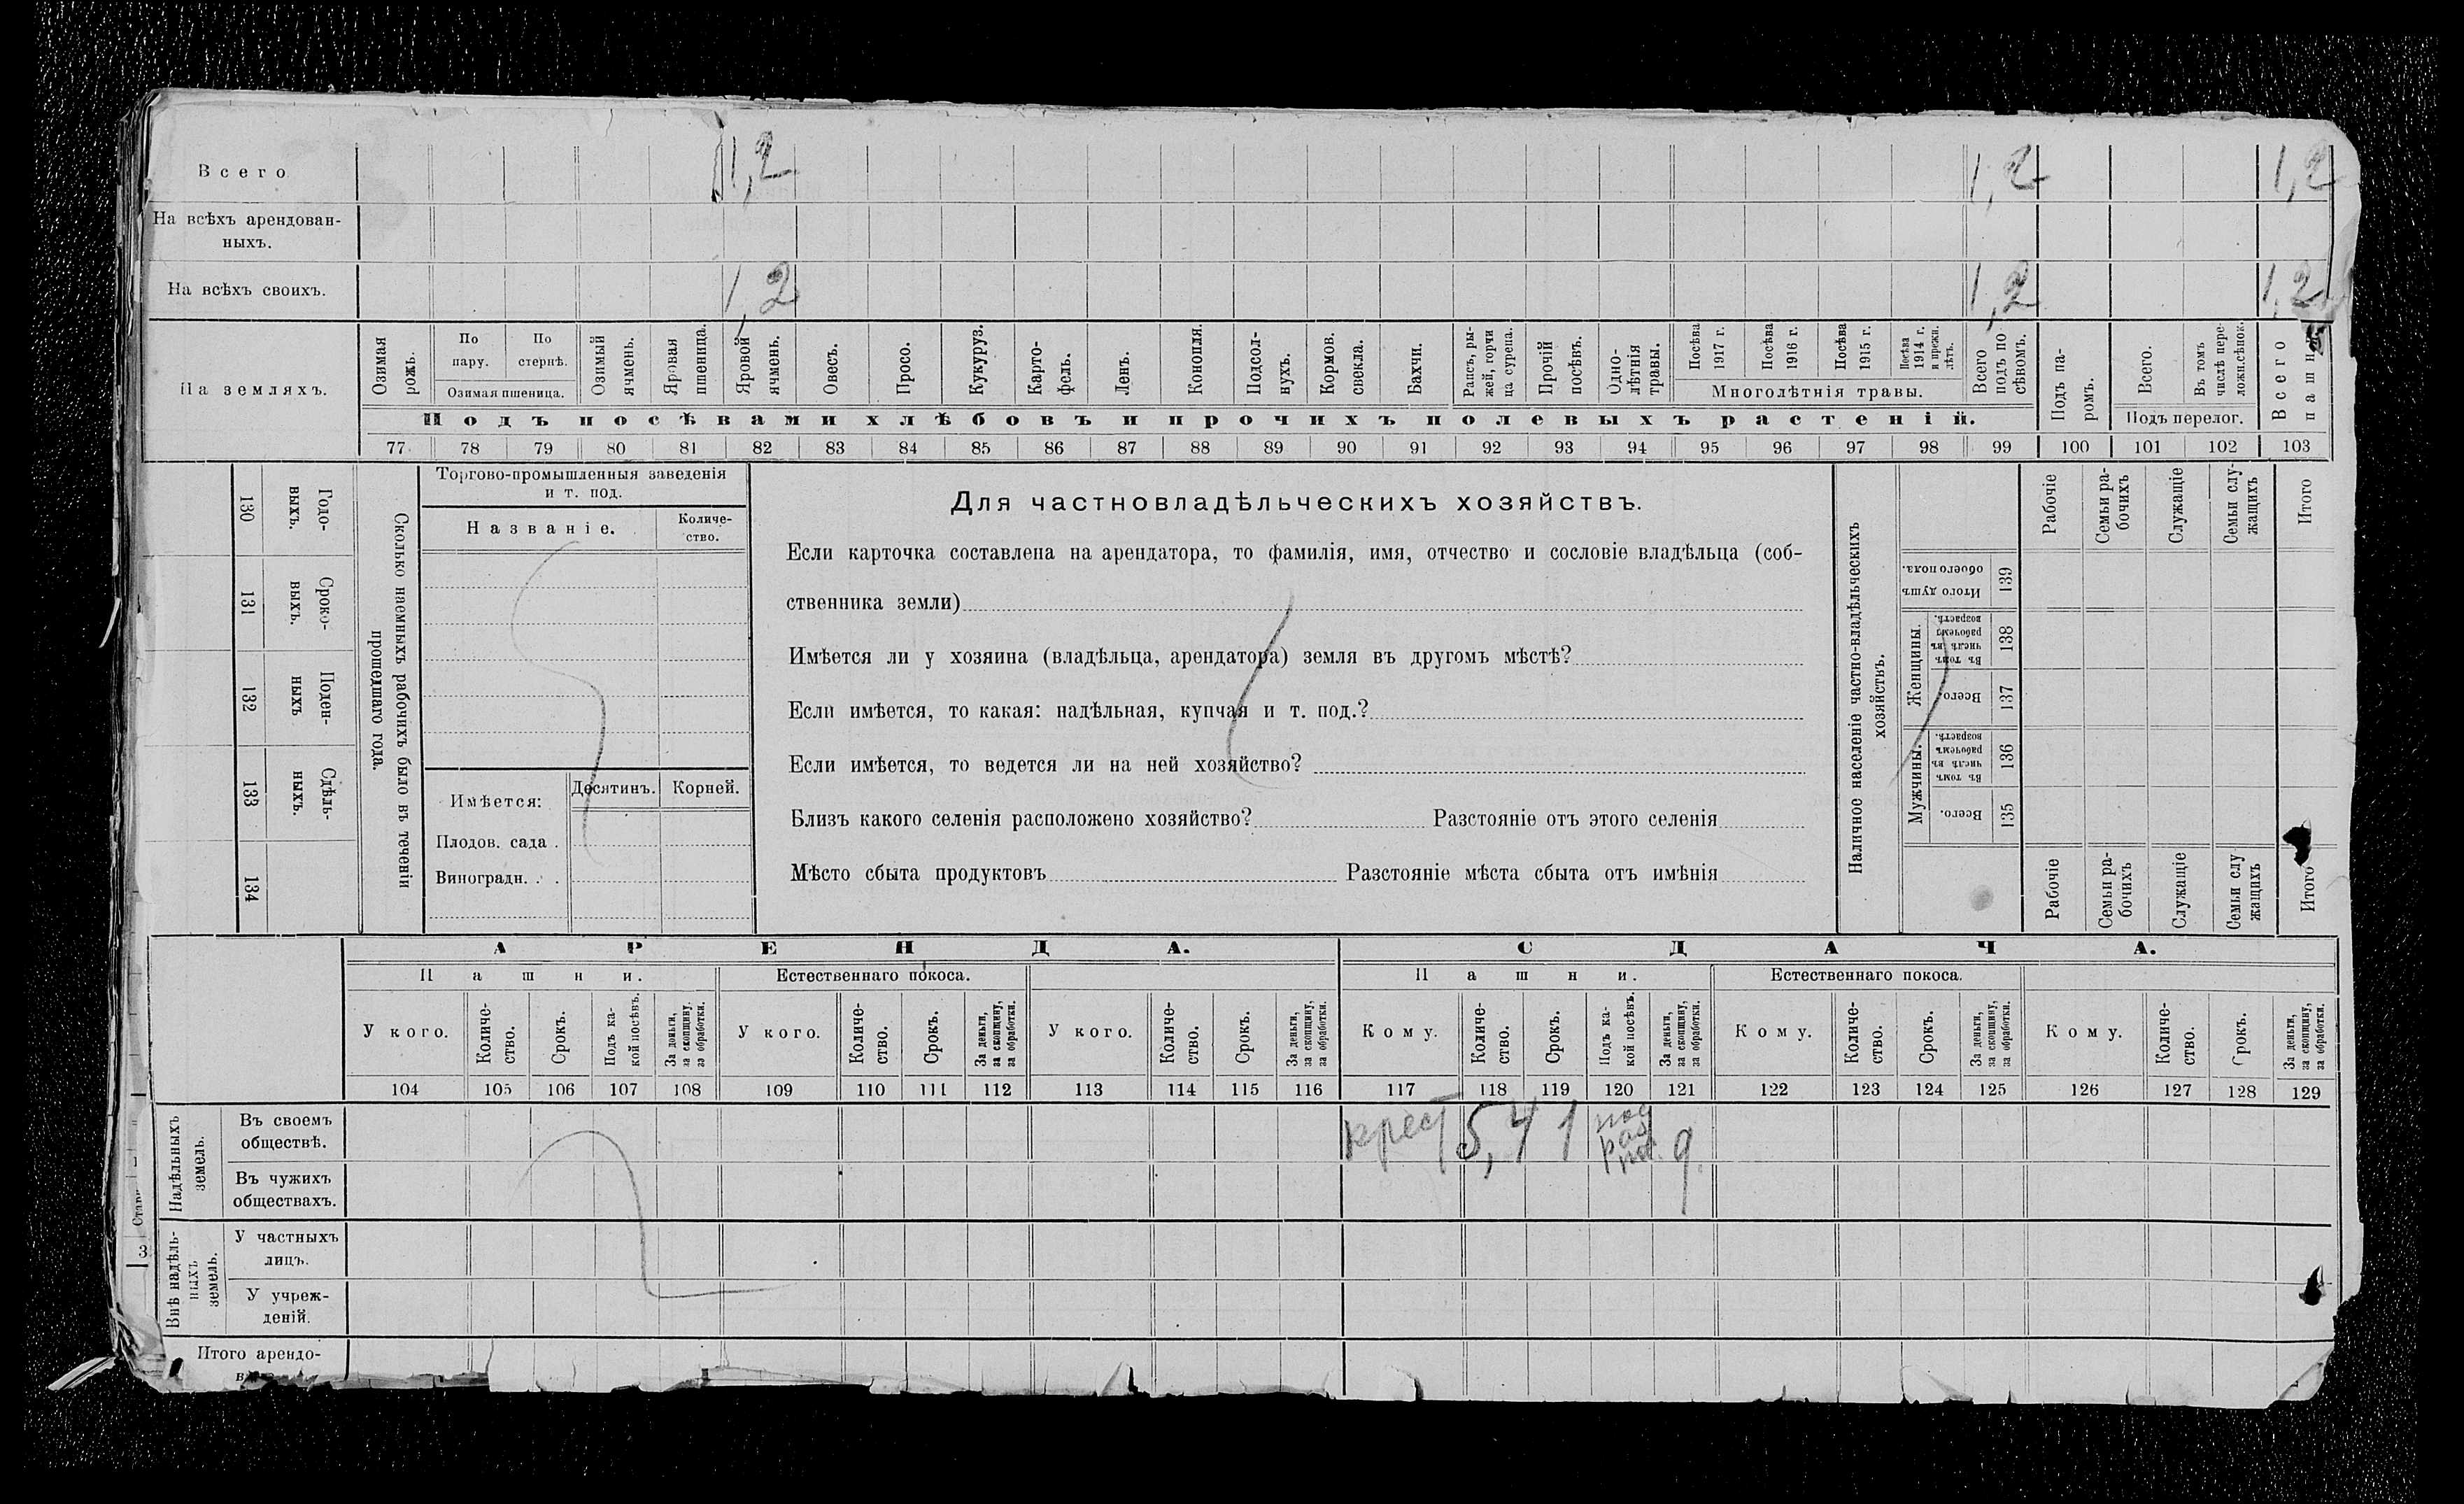 Всего 1,2 1,2 1,2
На всѣхъ арендован-
ныхъ.
На всѣхъ своихъ. 1,2 1,2 1,2
На земляхъ.
Озимая рожь.
По пару.
По стернѣ.
Озимая пшеница.
Озимый ячмень.
Яровая пшеница.
Яровой ячмень.
Овесъ.
Просо.
Кукуруз.
Карто-
фель.
Ленъ.
Конопля.
Подсол-
нухъ.
Кормов. свекла.
Бахчи.
Рапсъ, ры-
жей, горчи
ца сурепа.
Прочій посѣвъ.
Одно-
лѣтнія
травы.
Посѣва 1917 г.
Посѣва 1916 г.
Посѣва 1915 г.
Посѣва 1914 г. и прежн. лѣтъ.
Многолѣтнія травы.
Всего подъ по
сѣвомъ.
Подъ па-
ромъ.
Всего.
Въ томъ числѣ пере-
ложн.сѣнок.
Подъ перелог.
Всего пашни
Подъ посѣвами хлѣбовъ и прочихъ полевыхъ растеній.
77 78 79 80 81 82 83 84 85 86 87 88 89 90 91 92 93 94 95 96 97 98 99 100 101 102 103
130 Годо-
выхъ.
131 Сроко-
выхъ.
132 Поден-
ныхъ
133 Сдѣль-
ныхъ.
134
Сколько наемныхъ рабочихъ было въ теченіи
прошедшаго года.
Торгово-промышленныя заведенія
и т. под.
Названіе.
Количе-
ство.
Имѣется: Десятинъ. Корней.
Плодов. сада .
Виноградн. . .
Для частновладѣльческихъ хозяйствъ.
Если карточка составлена на арендатора, то фамилія, имя, отчество и сословіе владѣльца (соб-
ственника земли)
Имѣется ли у хозяина (владѣльца, арендатора) земля въ другомъ мѣстѣ?
Если имѣется, то какая: надѣльная, купчая и т. под.?
Если имѣется, то ведется ли на ней хозяйство?
Близъ какого селенія расположено хозяйство? Разстояніе отъ этого селенія
Мѣсто сбыта продуктовъ Разстояніе мѣста сбыта отъ имѣнія
Наличное населеніе частно-владѣльческихъ
хозяйствъ.
Рабочіе
Семьи ра-
бочихъ
Служащіе
Семьи слу-
жащихъ
Итого
Итого душъ
обоего пола.
139
Женщины.
Въ томъ числѣ въ рабочемъ возрастѣ.
138
Всего.
137
Мужчины.
Въ томъ числѣ въ рабочемъ возрастѣ.
136
Всего.
135
Рабочіе
Семьи ра-
бочихъ
Служащіе
Семьи слу
жащихъ
Итого
АРЕНДА. СДАЧА.
Пашни. Естественнаго покоса. Пашни. Естественнаго покоса.
У кого.
Количе-
ство.
Срокъ.
Подъ ка-
кой посѣвъ.
За деньги,
за скопщину,
за обработки.
У кого.
Количе-
ство.
Срокъ.
За деньги,
за скопщину,
за обработки.
У кого.
Количе-
ство.
Срокъ.
За деньги,
за скопщину,
за обработки.
Кому.
Количе-
ство.
Срокъ.
Подъ ка-
кой посѣвъ.
За деньги,
за скопщину,
за обработки.
Кому.
Количе-
ство.
Срокъ.
За деньги,
за скопщину,
за обработки.
Кому.
Количе-
ство.
Срокъ.
За деньги,
за скопщину,
за обработки.
104 105 106 107 108 109 110 111 112 113 114 115 116 117 118 119 120 121 122 123 124 125 126 127 128 129
Надѣльныхъ
земель.
Въ своемъ
обществѣ.
крест 5,4 1
Въ чужихъ
обществахъ.
Внѣ надѣль-
ныхъ
земель.
У частныхъ
лицъ.
У учреж-
деній.
Итого арендо-
3